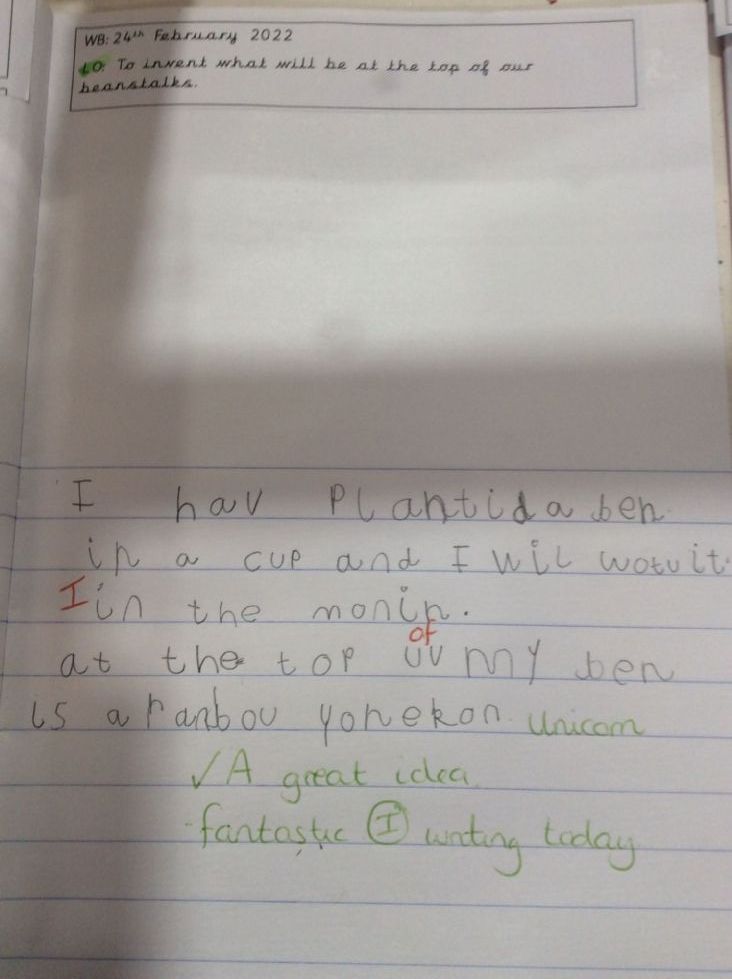 WB: 24th February 2022
LO: To invent what will be at the top of our
beanstalks.
I hav Plantid a ben
in a cup and I wil wotu it.
I in the monin.
of
at the top uv my ben
is a ranbou yonekon. Unicorn
✓ A great idea.
fantastic I writing today